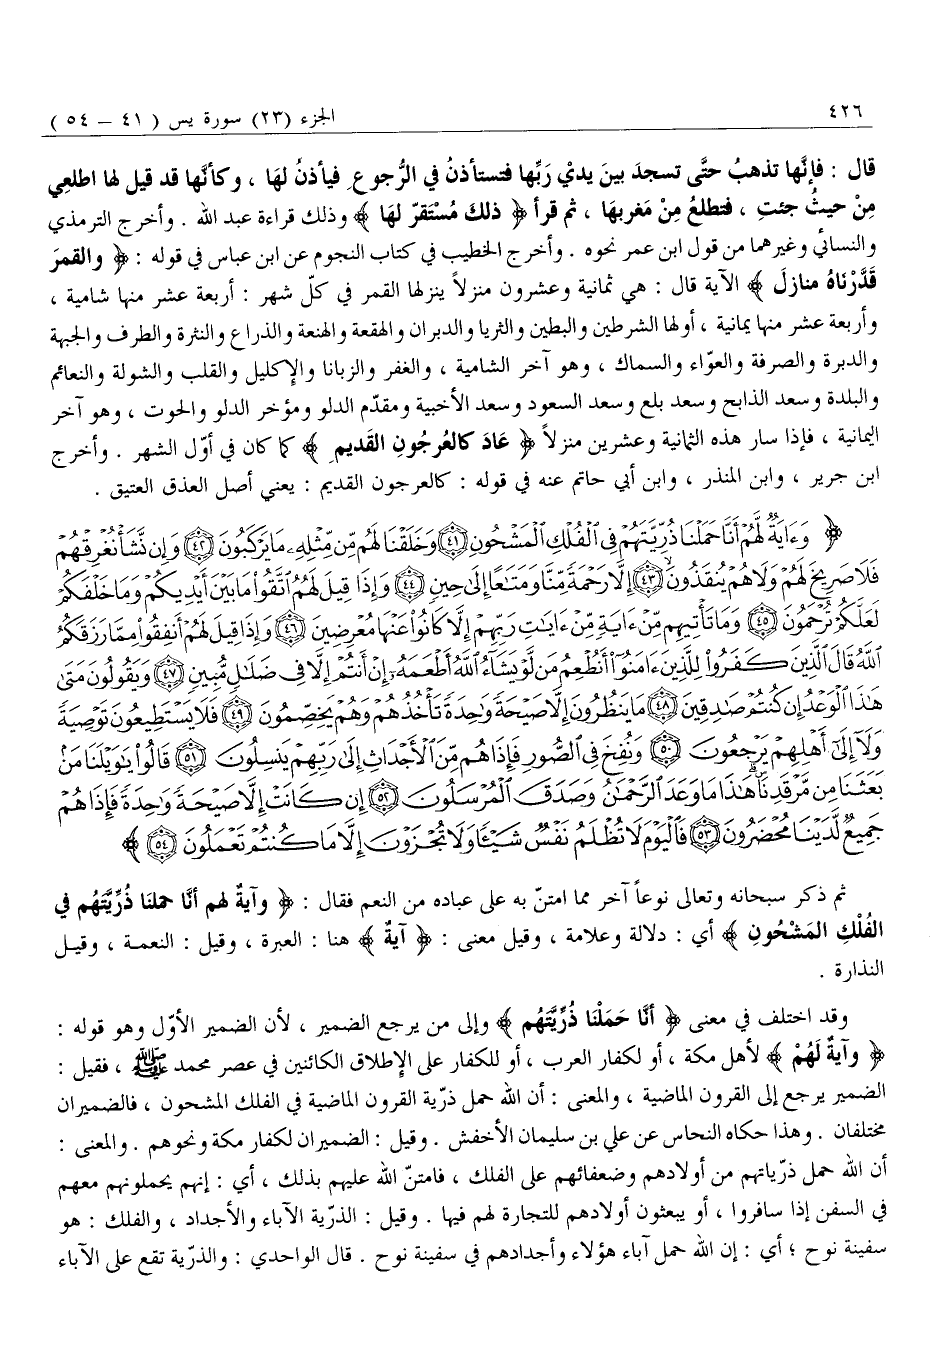 ٤٢٦
الجزء (٢٣) سورة يس ( ٤١ – ٥٤ )
قال : فإنَّها تذهبُ حتَّى تسجدَ بينَ يديْ رَبِّها فتستأذنُ في الرُّجوع ِ فيأذنُ لهَا ، وكأنَّها قد قيل لها اطلعِي
مِنْ حيثُ جئتِ ، فتطلعُ مِنْ مَغربهَا ، ثم قرأ ﴿ ذلكَ مُسْتَقرّ لهَا ﴾ وذلك قراءة عبد الله . وأخرج الترمذي
والنسائي وغيرهما من قول ابن عمر نحوه . وأخرج الخطيب في كتاب النجوم عن ابن عباس في قوله : ﴿ والقمرَ
قَدَّرْنَاهُ منازلَ ﴾ الآية قال : هي ثمانية وعشرون منزلاً ينزلها القمر في كلّ شهر : أربعة عشر منها شامية ،
وأربعة عشر منها يمانية ، أولها الشرطين والبطين والثريا والدبران والهقعة والهنعة والذراع والنثرة والطرف والجبهة
والدبرة والصرفة والعوّاء والسماك ، وهو آخر الشامية ، والغفر والزبانا والإكليل والقلب والشولة والنعائم
والبلدة وسعد الذابح وسعد بلع وسعد السعود وسعد الأخبية ومقدّم الدلو ومؤخر الدلو والحوت ، وهو آخر
اليمانية ، فإذا سار هذه الثمانية وعشرين منزلاً ﴿ عَادَ كالعُرجُونِ القَديم ِ ﴾ كما كان في أوّل الشهر . وأخرج
ابن جرير ، وابن المنذر ، وابن أبي حاتم عنه في قوله : كالعرجون القديم : يعني أصل العذق العتيق .
﴿ وَءَايَةٌ لَّهُمْ أَنَّا حَمَلْنَا ذُرِّيَّتَهُمْ فِى ٱلْفُلْكِ ٱلْمَشْحُونِ ٤١ وَخَلَقْنَا لَهُم مِّن مِّثْلِهِۦ مَا يَرْكَبُونَ ٤٢ وَإِن نَّشَأْ نُغْرِقْهُمْ
فَلَا صَرِيخَ لَهُمْ وَلَا هُمْ يُنقَذُونَ ٤٣ إِلَّا رَحْمَةً مِّنَّا وَمَتَٰعًا إِلَىٰ حِينٍ ٤٤ وَإِذَا قِيلَ لَهُمُ ٱتَّقُوا۟ مَا بَيْنَ أَيْدِيكُمْ وَمَا خَلْفَكُمْ
لَعَلَّكُمْ تُرْحَمُونَ ٤٥ وَمَا تَأْتِيهِم مِّنْ ءَايَةٍ مِّنْ ءَايَٰتِ رَبِّهِمْ إِلَّا كَانُوا۟ عَنْهَا مُعْرِضِينَ ٤٦ وَإِذَا قِيلَ لَهُمْ أَنفِقُوا۟ مِمَّا رَزَقَكُمُ
ٱللَّهُ قَالَ ٱلَّذِينَ كَفَرُوا۟ لِلَّذِينَ ءَامَنُوٓا۟ أَنُطْعِمُ مَن لَّوْ يَشَآءُ ٱللَّهُ أَطْعَمَهُۥٓ إِنْ أَنتُمْ إِلَّا فِى ضَلَٰلٍ مُّبِينٍ ٤٧ وَيَقُولُونَ مَتَىٰ
هَٰذَا ٱلْوَعْدُ إِن كُنتُمْ صَٰدِقِينَ ٤٨ مَا يَنظُرُونَ إِلَّا صَيْحَةً وَٰحِدَةً تَأْخُذُهُمْ وَهُمْ يَخِصِّمُونَ ٤٩ فَلَا يَسْتَطِيعُونَ تَوْصِيَةً
وَلَآ إِلَىٰٓ أَهْلِهِمْ يَرْجِعُونَ ٥٠ وَنُفِخَ فِى ٱلصُّورِ فَإِذَا هُم مِّنَ ٱلْأَجْدَاثِ إِلَىٰ رَبِّهِمْ يَنسِلُونَ ٥١ قَالُوا۟ يَٰوَيْلَنَا مَنۢ
بَعَثَنَا مِن مَّرْقَدِنَا ۜ هَٰذَا مَا وَعَدَ ٱلرَّحْمَٰنُ وَصَدَقَ ٱلْمُرْسَلُونَ ٥٢ إِن كَانَتْ إِلَّا صَيْحَةً وَٰحِدَةً فَإِذَا هُمْ
جَمِيعٌ لَّدَيْنَا مُحْضَرُونَ ٥٣ فَٱلْيَوْمَ لَا تُظْلَمُ نَفْسٌ شَيْـًٔا وَلَا تُجْزَوْنَ إِلَّا مَا كُنتُمْ تَعْمَلُونَ ٥٤ ﴾
ثم ذكر سبحانه وتعالى نوعاً آخر مما امتنّ به على عباده من النعم فقال : ﴿ وآيةٌ لهم أنَّا حملنَا ذُرِّيَّتَهُم في
الفُلْكِ المَشْحُونِ ﴾ أي : دلالة وعلامة ، وقيل معنى : ﴿ آيةٌ ﴾ هنا : العبرة ، وقيل : النعمة ، وقيل
النذارة .
وقد اختلف في معنى ﴿ أنَّا حَمَلْنَا ذُرِّيَّتَهُم ﴾ وإلى من يرجع الضمير ، لأن الضمير الأوّل وهو قوله :
﴿ وآيةٌ لَهُمْ ﴾ لأهل مكة ، أو لكفار العرب ، أو للكفار على الإطلاق الكائنين في عصر محمد ﷺ ، فقيل :
الضمير يرجع إلى القرون الماضية ، والمعنى : أن الله حمل ذرّية القرون الماضية في الفلك المشحون ، فالضميران
مختلفان . وهذا حكاه النحاس عن علي بن سليمان الأخفش . وقيل : الضميران لكفار مكة ونحوهم . والمعنى :
أن الله حمل ذرّياتهم من أولادهم وضعفائهم على الفلك ، فامتنّ الله عليهم بذلك ، أي : إنهم يحملونهم معهم
في السفن إذا سافروا ، أو يبعثون أولادهم للتجارة لهم فيها . وقيل : الذرّية الآباء والأجداد ، والفلك : هو
سفينة نوح ؛ أي : إن الله حمل آباء هؤلاء وأجدادهم في سفينة نوح . قال الواحدي : والذرّية تقع على الآباء